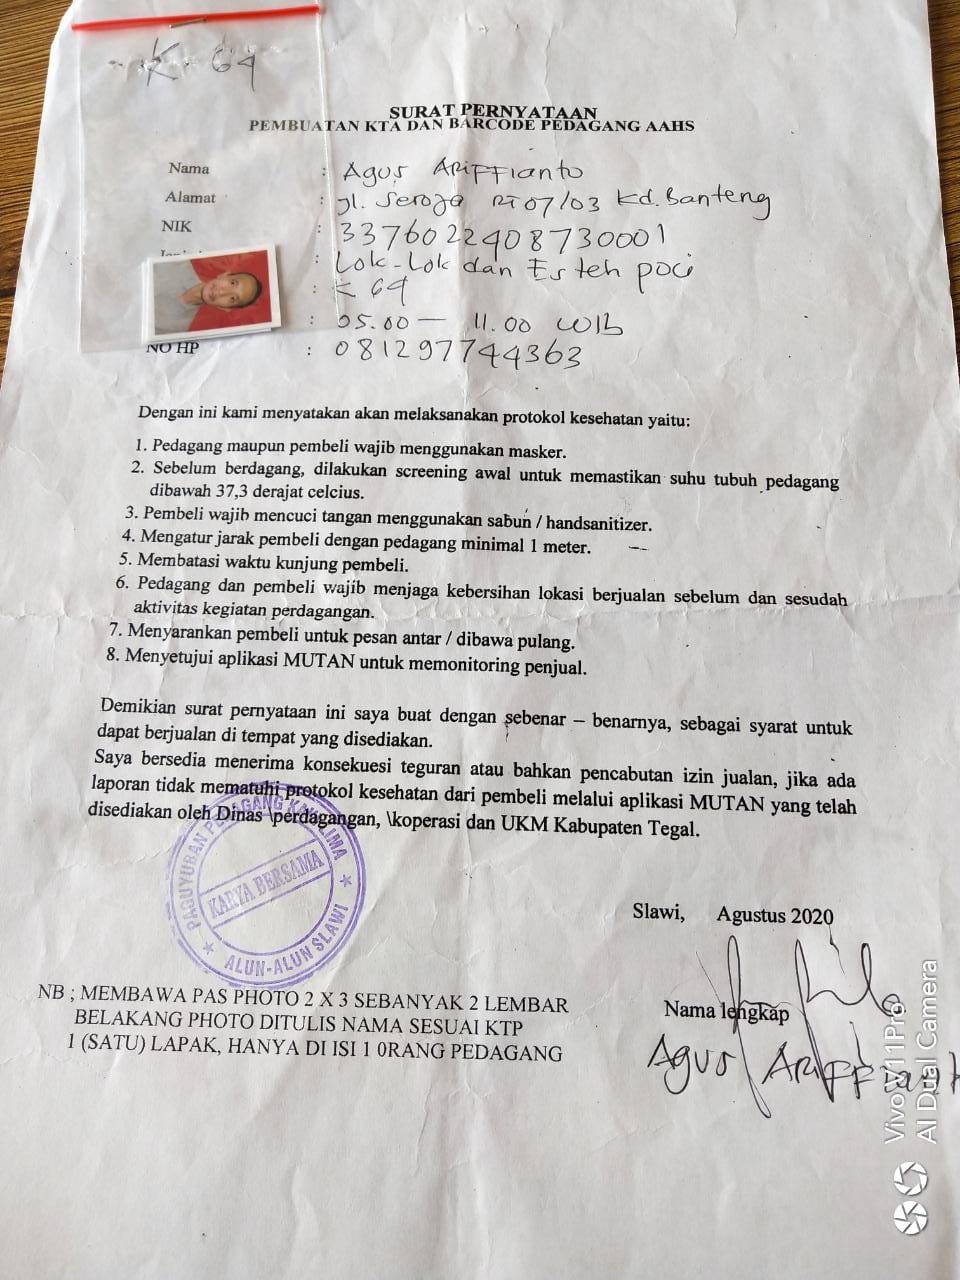 K 64
SURAT PERNYATAAN
PEMBUATAN KTA DAN BARCODE PEDAGANG AAHS
Nama : Agus Ariffianto
Alamat : Jl. Seroja RT 07/03 Kd. Banteng
NIK : 3376022408730001
: Lok-Lok dan Es teh poci
: K 64
: 05.00 — 11.00 WIB
NO HP : 081297744363
Dengan ini kami menyatakan akan melaksanakan protokol kesehatan yaitu:
1. Pedagang maupun pembeli wajib menggunakan masker.
2. Sebelum berdagang, dilakukan screening awal untuk memastikan suhu tubuh pedagang
dibawah 37,3 derajat celcius.
3. Pembeli wajib mencuci tangan menggunakan sabun / handsanitizer.
4. Mengatur jarak pembeli dengan pedagang minimal 1 meter.
5. Membatasi waktu kunjung pembeli.
6. Pedagang dan pembeli wajib menjaga kebersihan lokasi berjualan sebelum dan sesudah
aktivitas kegiatan perdagangan.
7. Menyarankan pembeli untuk pesan antar / dibawa pulang.
8. Menyetujui aplikasi MUTAN untuk memonitoring penjual.
Demikian surat pernyataan ini saya buat dengan sebenar – benarnya, sebagai syarat untuk
dapat berjualan di tempat yang disediakan.
Saya bersedia menerima konsekuesi teguran atau bahkan pencabutan izin jualan, jika ada
laporan tidak mematuhi protokol kesehatan dari pembeli melalui aplikasi MUTAN yang telah
disediakan oleh Dinas \perdagangan, \koperasi dan UKM Kabupaten Tegal.
PAGUYUBAN PEDAGANG KAKI LIMA
KARYA BERSAMA
ALUN-ALUN SLAWI
Slawi, Agustus 2020
Nama lengkap
Agus Ariffiant
NB ; MEMBAWA PAS PHOTO 2 X 3 SEBANYAK 2 LEMBAR
BELAKANG PHOTO DITULIS NAMA SESUAI KTP
1 (SATU) LAPAK, HANYA DI ISI 1 0RANG PEDAGANG
Vivo V11Pro
AI Dual Camera